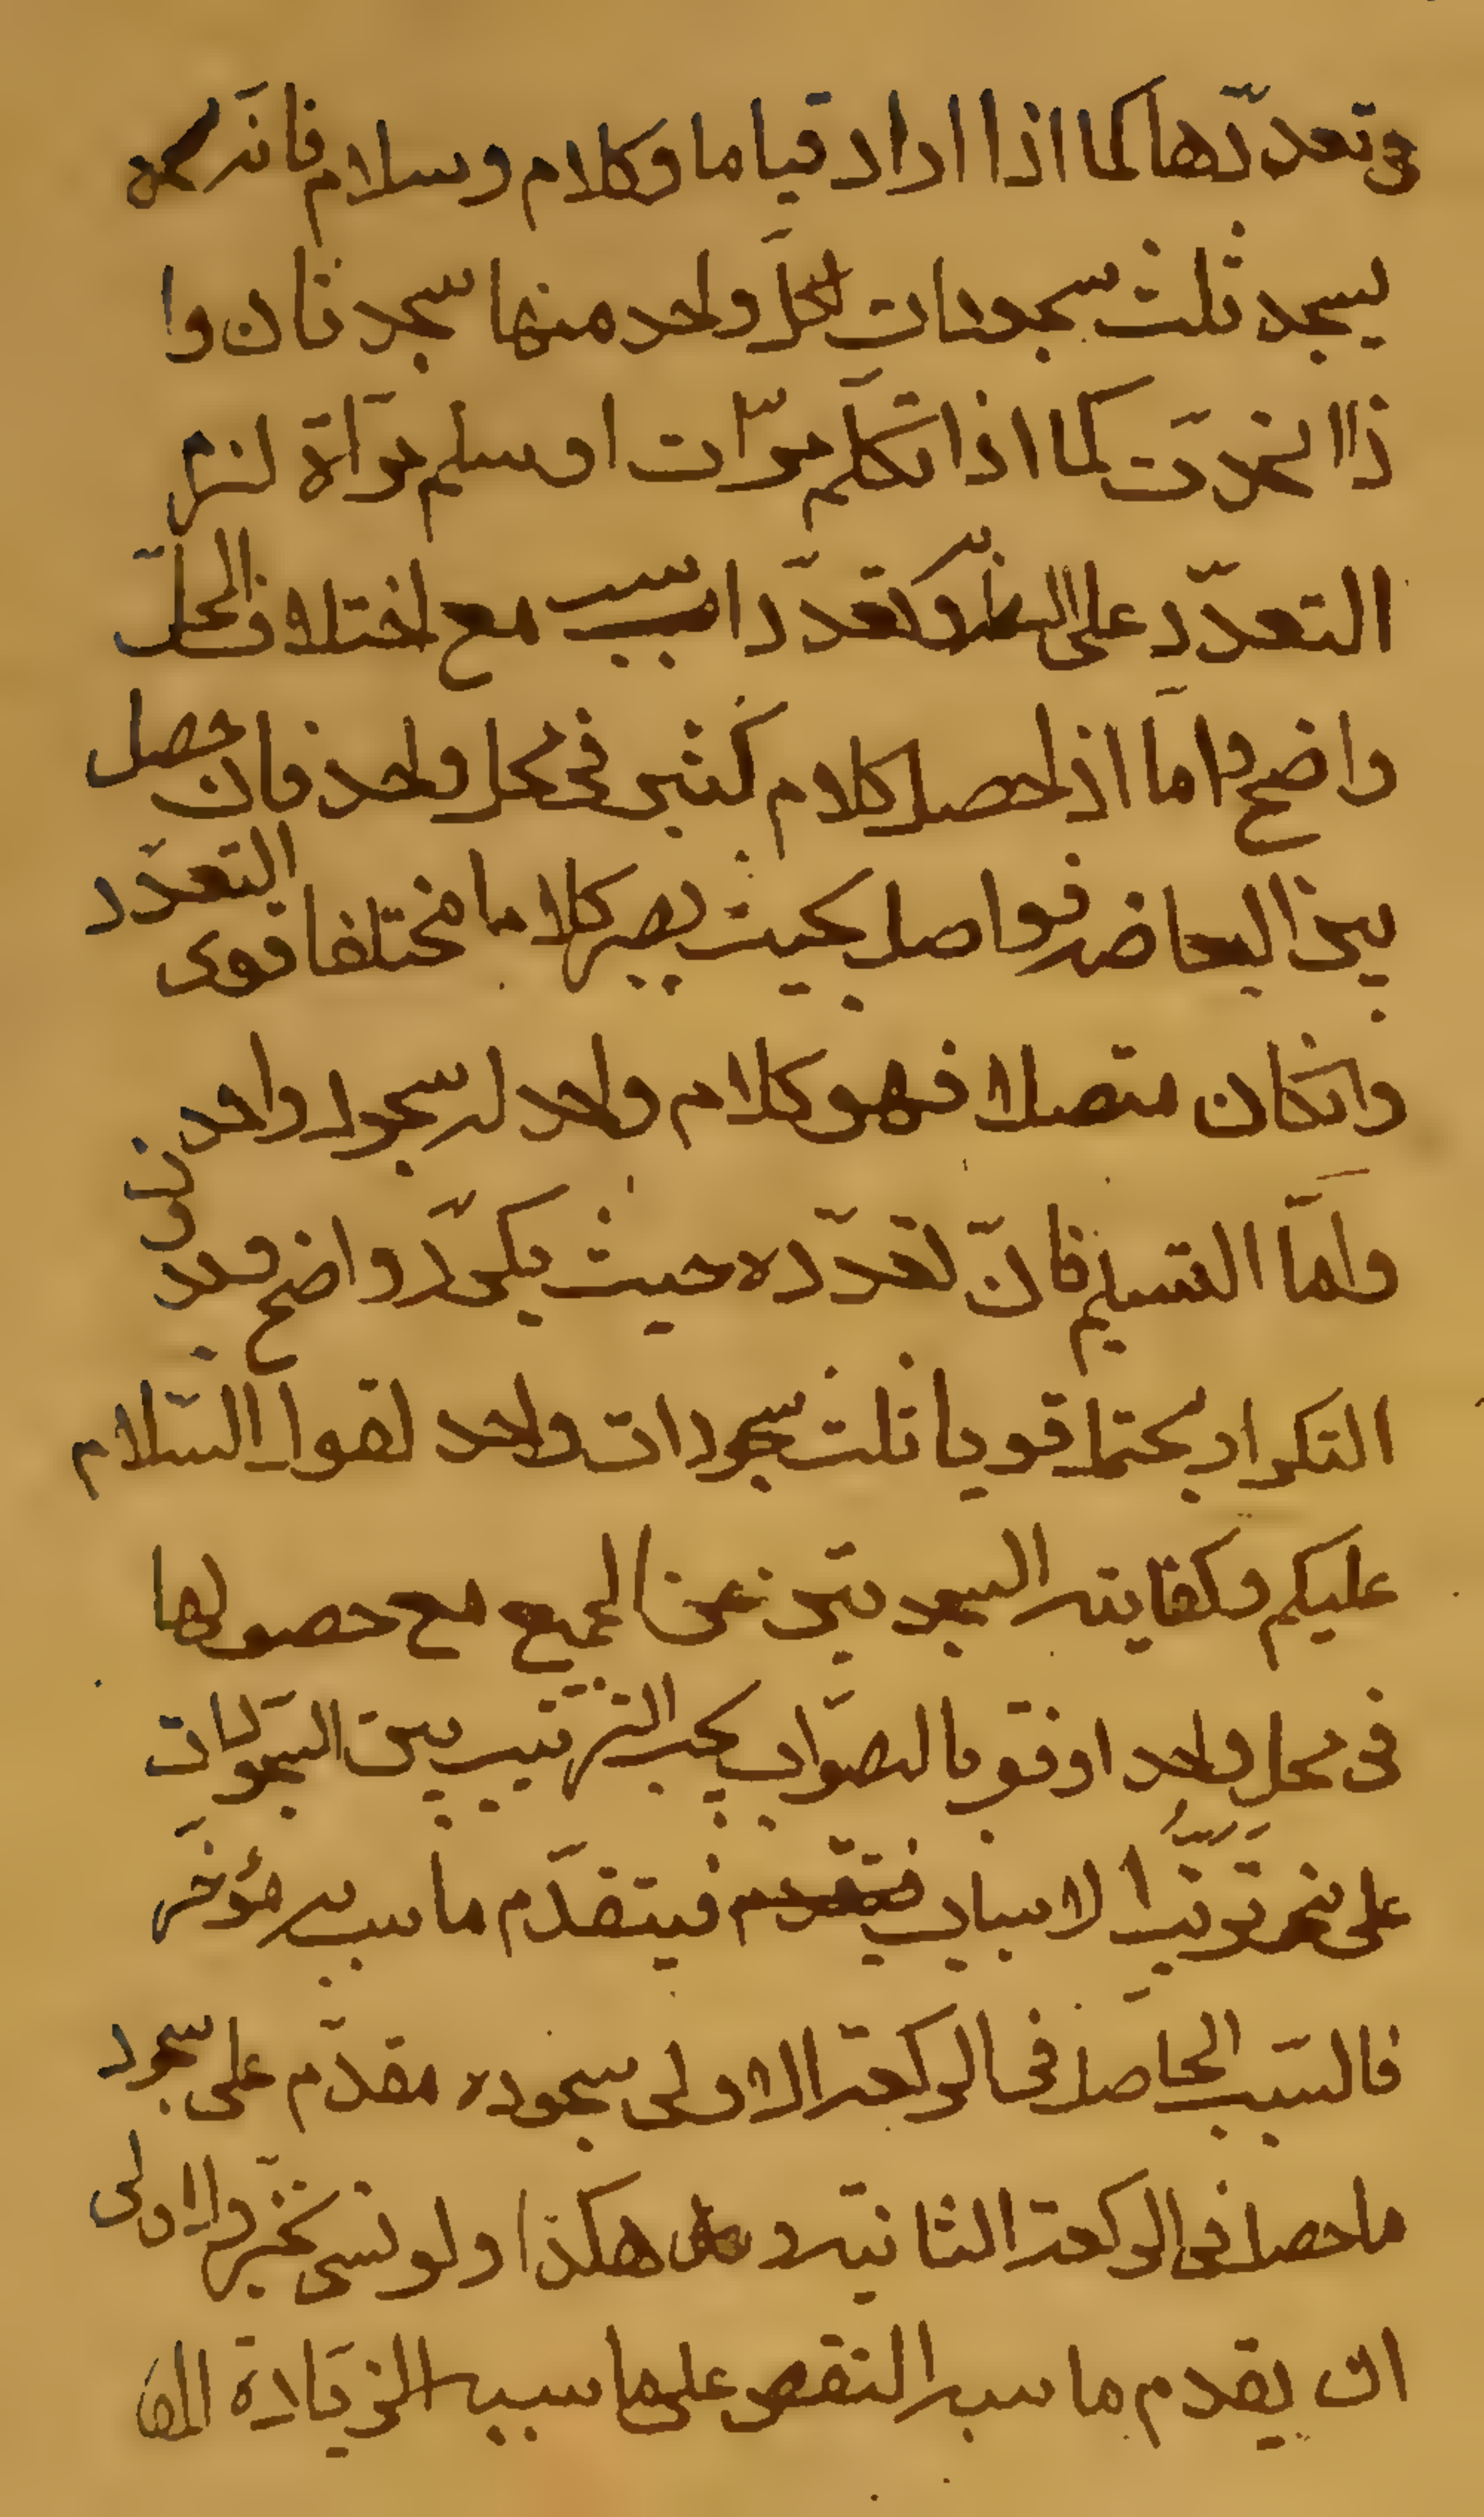 وتعدّدها كما اذا اراد قياما وكلام وسلام فانه
يسجد ثلث سجدات لكلّ واحد منها سجدتان وا
ذا اتحدت كما اذا تكلّم مرّات او سلم مرّاة لزم
التعدّد على تعدّد السبب مع اختلاف المحلّ
واضح وامّا اذا حصل كلام كثير في محل واحد فان حصل
بين ابعاضه فواصل بحيث يصير كلاما مختلفا قوى التعدّد
وانكان متصلا فهو كلام واحد له سجود واحد
وامّا التسليم فانّ تعدّده حيث يكرّر واضح وبدون
التكرار يحتمل قويا ثلث سجودات واحد لقول السّلام
عليكم وكفاية السجدتين عن الجميع مع حصولها
في محل واحد اوفق بالصّواب يجب الترتيب بين السجودات
على نحو ترتيب الاسباب فيتقدّم ما سببه مؤخّر
فالسّبب الحاصل في الركعة الاولى سجوده مقدّم على سجود
ما حصل في الركعة الثانية وهكذا ولو نسى تخيّر والاولى
ان يقدم ما سببه النقص على ما سببه الزيادة